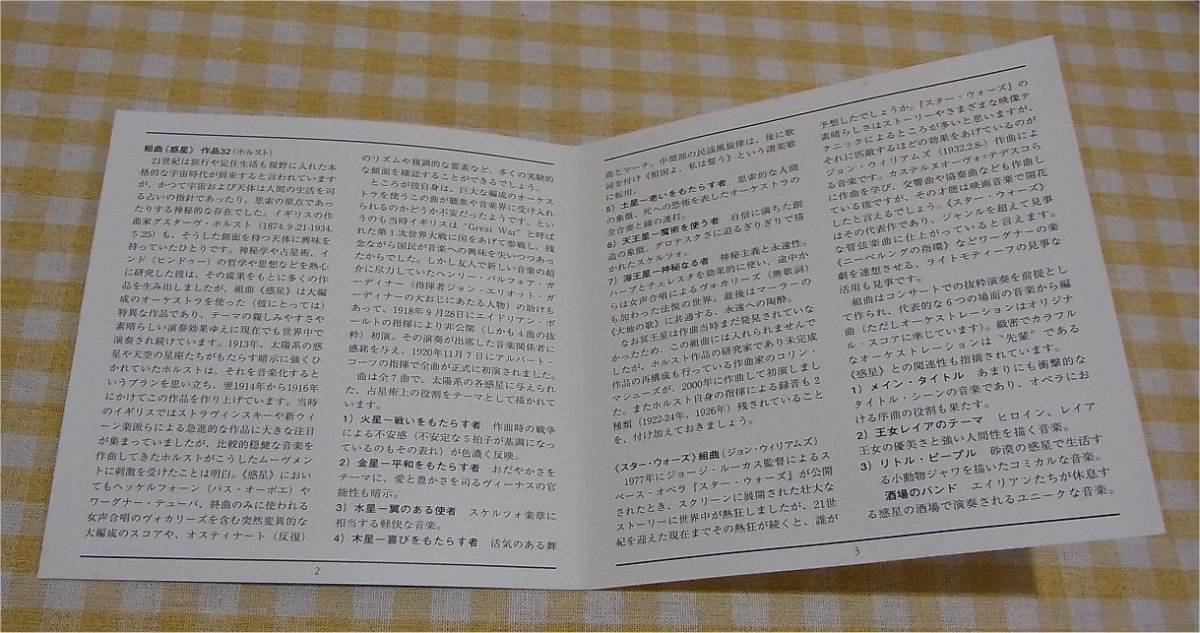 組曲《惑星》 作品32(ホルスト)
21世紀は旅行や定住生活も視野に入れた本
格的な宇宙時代が到来すると言われています
が、かつて宇宙および天体は人間の生活を司
る占いの指針であったり、思索の原点であっ
たりする神秘的な存在でした。イギリスの作
曲家グスターヴ・ホルスト(1874.9.21-1934.
5.25)も、そうした側面を持つ天体に興味を
持っていたひとりです。神秘学や占星術、イ
ンド(ヒンドゥー)の哲学や思想などを熱心
に研究した彼は、その成果をもとに多くの作
品を生み出しましたが、組曲《惑星》は大編
成のオーケストラを使った(彼にとっては)
特異な作品であり、テーマの親しみやすさや
素晴らしい演奏効果ゆえに現在でも世界中で
演奏され続けています。1913年、太陽系の惑
星や天空の星座たちがもたらす暗示に強くひ
かれていたホルストは、それを音楽化すると
いうプランを思い立ち、翌1914年から1916年
にかけてこの作品を作り上げています。当時
のイギリスではストラヴィンスキーや新ウィ
ーン楽派らによる急進的な作品に大きな注目
が集まっていましたが、比較的穏健な音楽を
作曲してきたホルストがこうしたムーヴメン
トに刺激を受けたことは明白。《惑星》におい
てもヘッケルフォーン(バス・オーボエ)や
ワーグナー・テューバ、終曲のみに使われる
女声合唱のヴォカリーズを含む突然変異的な
大編成のスコアや、オスティナート(反復)
のリズムや複調的な要素など、多くの実験的
な側面を確認することができるでしょう。
ところが彼自身は、巨大な編成のオーケス
トラを使うこの曲が聴衆や音楽界に受け入れ
られるのかどうか不安だったようです。とい
うのも当時イギリスは"Great War"と呼ば
れた第1次世界大戦に国をあげて参戦し、残
念ながら国民が音楽への興味を失いつつあっ
たからでした。しかし友人で新しい音楽の紹
介に尽力していたヘンリー・バルフォア・ガ
ーディナー(指揮者ジョン・エリオット・ガ
ーディナーの大おじにあたる人物)の助けも
あって、1918年9月28日にエイドリアン・ボ
ールトの指揮により非公開(しかも4曲の抜
粋)初演。その演奏が出席した音楽関係者に
感銘を与え、1920年11月7日にアルバート・
コーツの指揮で全曲が正式に初演されました。
曲は全7曲で、太陽系の各惑星に与えられ
た、占星術上の役割をテーマとして描かれて
います。
1)火星―戦いをもたらす者 作曲時の戦争
による不安感(不安定な5拍子が基調になっ
ているのもその表れ)が色濃く反映。
2)金星―平和をもたらす者 おだやかさを
テーマに、愛と豊かさを司るヴィーナスの官
能性も暗示。
3)水星―翼のある使者 スケルツォ楽章に
相当する軽快な音楽。
4)木星―喜びをもたらす者 活気のある舞
2
曲とマーチ。中間部の民謡風旋律は、後に歌
詞を付け《祖国よ、私は誓う》という讃美歌
に転用。
5)土星―老いをもたらす者 思索的な人間
の象徴。死への恐怖を表したオーケストラの
全合奏と鐘の連打。
6)天王星―魔術を使う者 自信に満ちた創
造の象徴。グロテスクさに迫るぎりぎりで描
かれたスケルツォ。
7)海王星―神秘なる者 神秘主義と永遠性。
ハープとチェレスタを効果的に使い、途中か
らは女声合唱によるヴォカリーズ(無歌詞)
も加わった法悦の世界。最後はマーラーの
《大地の歌》に共通する、永遠への陶酔。
なお冥王星は作曲当時まだ発見されていな
かったため、この組曲には入れられませんで
したが、ホルスト作品の研究家であり未完成
作品の再構成も行っている作曲家のコリン・
マシューズが、2000年に作曲して初演しまし
た。またホルスト自身の指揮による録音も2
種類(1922-24年、1926年)残されていること
を、付け加えておきましょう。
《スター・ウォーズ》組曲(ジョン・ウィリアムズ)
1977年にジョージ・ルーカス監督によるス
ペース・オペラ『スター・ウォーズ』が公開
されたとき、スクリーンに展開された壮大な
ストーリーに世界中が熱狂しましたが、21世
紀を迎えた現在までその熱狂が続くと、誰が
予想したでしょうか。『スター・ウォーズ』の
素晴らしさはストーリーやさまざまな映像テ
クニックによるところが多いと思いますが、
それに匹敵するほどの効果をあげているのが
ジョン・ウィリアムズ(1932.2.8-)作曲によ
る音楽です。カステルヌオーヴォ=テデスコら
に作曲を学び、交響曲や協奏曲なども作曲し
ている彼ですが、その才能は映画音楽で開花
したと言えるでしょう。《スター・ウォーズ》
はその代表作であり、ジャンルを超えて見事
な管弦楽曲に仕上がっていると言えます。
《ニーベルングの指環》などワーグナーの楽
劇を連想させる、ライトモティーフの見事な
活用も見事です。
組曲はコンサートでの抜粋演奏を前提とし
て作られ、代表的な6つの場面の音楽から編
曲(ただしオーケストレーションはオリジナ
ル・スコアに準じています)。緻密でカラフル
なオーケストレーションは"先輩"である
《惑星》との関連性も指摘されています。
1)メイン・タイトル あまりにも衝撃的な
タイトル・シーンの音楽であり、オペラにお
ける序曲の役割も果たす。
2)王女レイアのテーマ ヒロイン、レイア
王女の優美さと強い人間性を描く音楽。
3)リトル・ピープル 砂漠の惑星で生活す
る小動物ジャワを描いたコミカルな音楽。
酒場のバンド エイリアンたちが休息す
る惑星の酒場で演奏されるユニークな音楽。
3